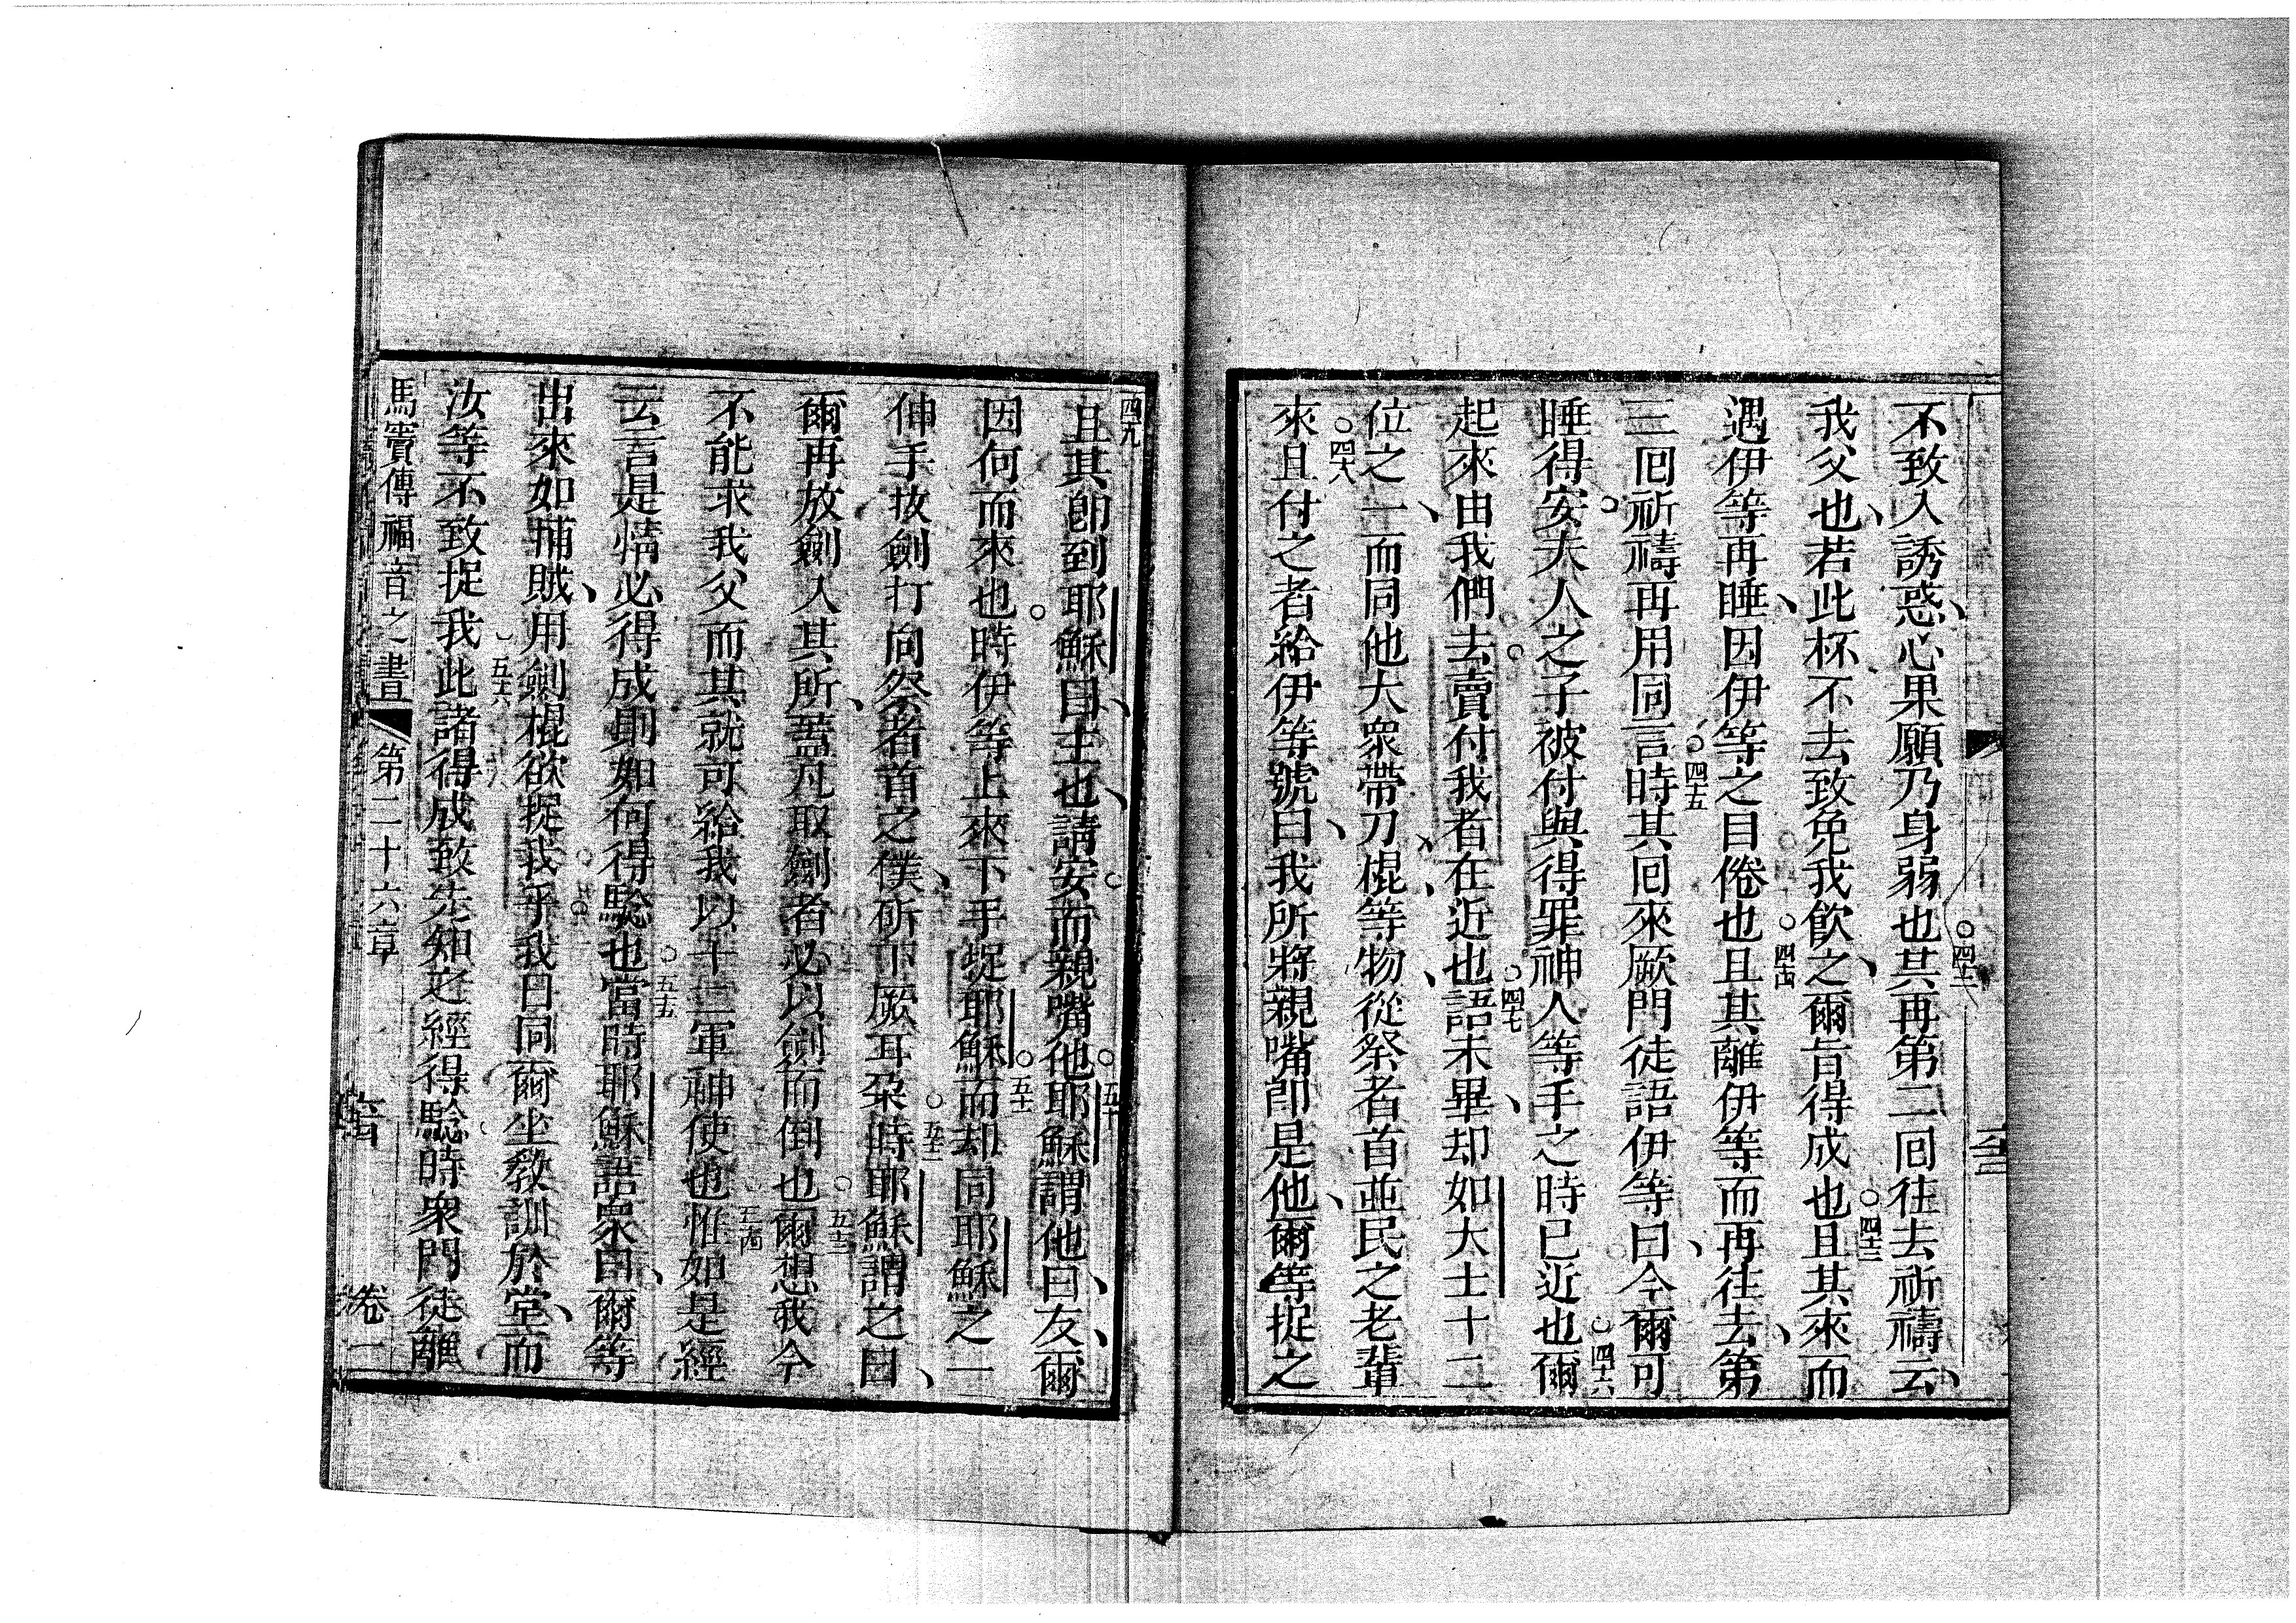 不致入誘惑、心果願乃身弱也○四十二其再第二囘往去祈禱云、
我父也、若此杯不去致免我飲之、爾旨得成也○四十三且其來而
遇伊等再睡、因伊等之目倦也○四十四且其離伊等而再往去、第
三囘祈禱再用同言○四十五時其囘來厥門徒語伊等曰、今爾可
睡得安。夫人之子被付與得罪神人等手之時已近也○四十六爾
起來由我們去。賣付我者在近也○四十七語未畢、却如大士十二
位之一、而同他大衆帶刀、棍、等物、從祭者首並民之老輩
○四十八來且付之者給伊等號、曰我所將親嘴卽是他、爾等捉之
四九且其卽到耶穌曰、主也、請安。而親嘴他○五十耶穌謂他曰、友、爾
因何而來也。時伊等上來下手捉耶穌○五十一而却同耶穌之一
伸手拔劍打向祭者首之僕、斫下厥耳朶○五十二時耶穌謂之曰、
爾再放劍入其所、蓋凡取劍者必以劍而倒也○五十三爾想我今
不能求我父而其就可給我以十二軍神使也○五十四惟如是經
云言是情必得成則如何得騐也○五十五當時耶穌語衆曰、爾等
出來如捕賊、用劍棍欲捉我乎我日同爾坐敎訓於堂、而
汝等不致捉我○五十六此諸得成致先知之經得騐。時衆門徒離
馬竇傳福音之書 第二十六章 卷一